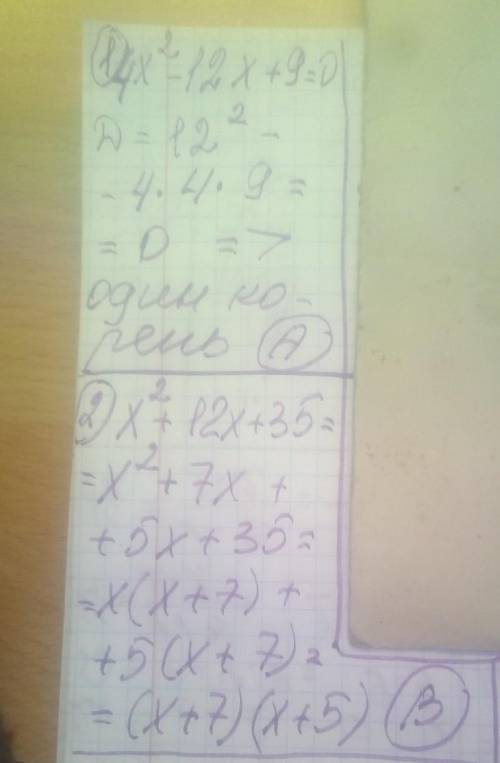 ① 4x² - 12x + 9 = 0
D = 12² -
- 4 · 4 · 9 =
= 0 =>
один ко-
рень Ⓐ
② x² + 12x + 35 =
= x² + 7x +
+ 5x + 35 =
= x(x + 7) +
+ 5(x + 7) =
= (x + 7)(x + 5) Ⓑ